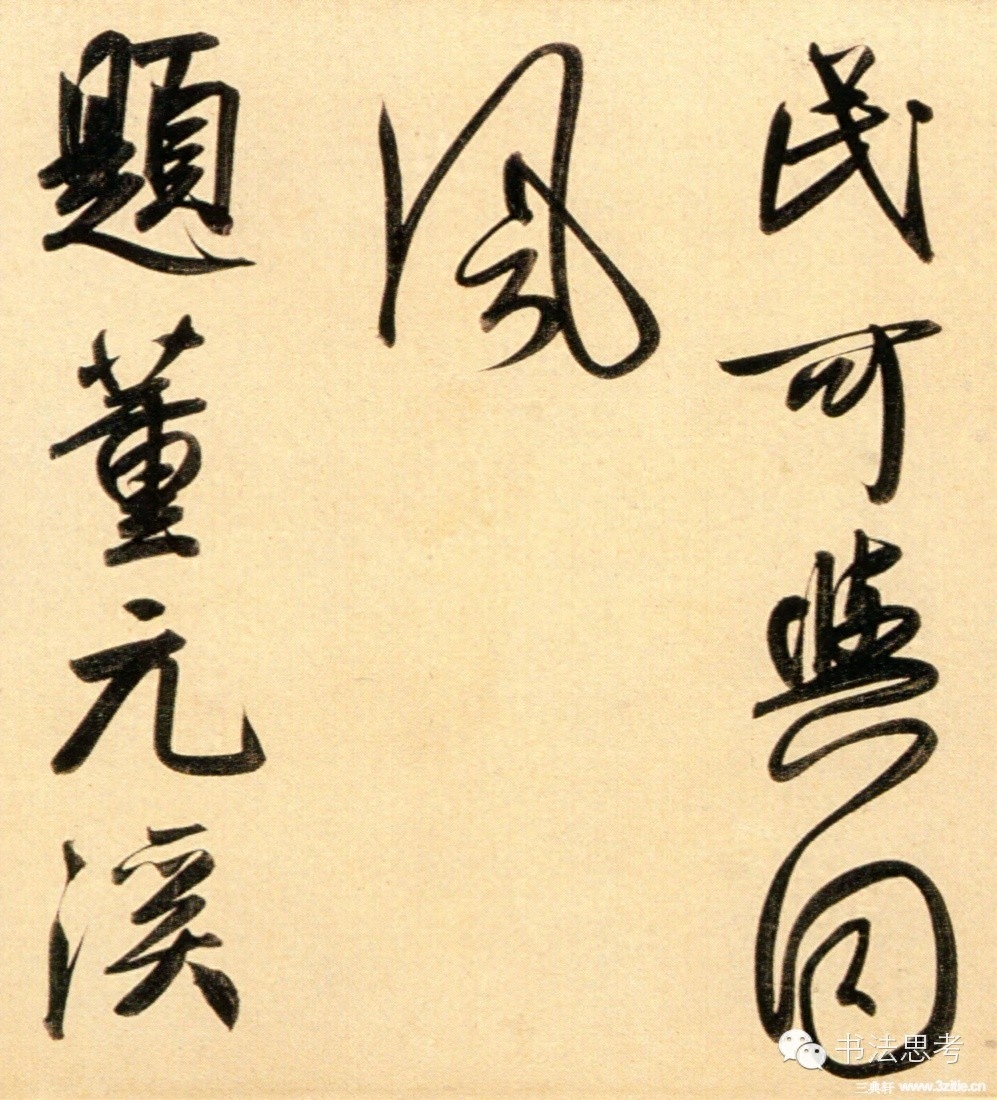 民可與同
風
題董元溪
书法思考
三典轩 www.3zitie.cn